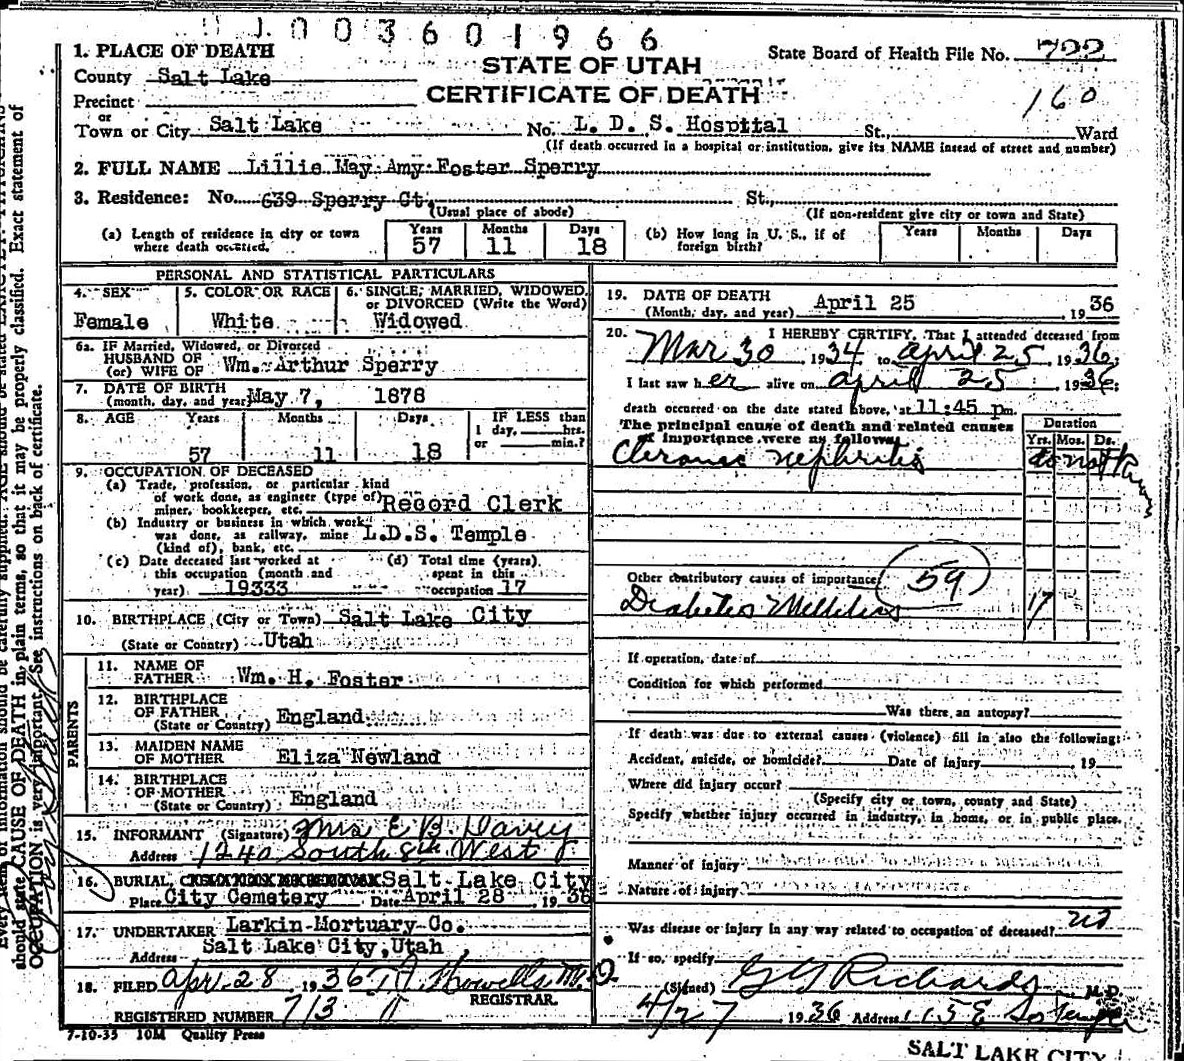 0 0 3 6 0 1 9 6 6
1. PLACE OF DEATH
STATE OF UTAH
State Board of Health File No. 722
County Salt Lake
CERTIFICATE OF DEATH
160
Precinct
or
Town or City Salt Lake No. L. D. S. Hospital St., Ward
(If death occurred in a hospital or institution, give its NAME instead of street and number)
2. FULL NAME Lillie May Amy Foster Sperry
3. Residence: No. 639 Sperry Ct. St.,
(Usual place of abode) (If non-resident give city or town and State)
(a) Length of residence in city or town where death occurred. Years 57 Months 11 Days 18
(b) How long in U. S., if of foreign birth? Years Months Days
PERSONAL AND STATISTICAL PARTICULARS
4. SEX Female
5. COLOR OR RACE White
6. SINGLE, MARRIED, WIDOWED, or DIVORCED (Write the Word) Widowed
6a. IF Married, Widowed, or Divorced
HUSBAND OF
(or) WIFE OF Wm. Arthur Sperry
7. DATE OF BIRTH
(month, day, and year) May 7, 1878
8. AGE Years 57 Months 11 Days 18 IF LESS than
1 day, hrs.
or min.?
9. OCCUPATION OF DECEASED
(a) Trade, profession, or particular kind
of work done, as engineer (type of)
miner, bookkeeper, etc. Record Clerk
(b) Industry or business in which work
was done, as railway, mine L.D.S. Temple
(kind of), bank, etc.
(c) Date deceased last worked at
this occupation (month and
year) 19333
(d) Total time (years)
spent in this
occupation 17
10. BIRTHPLACE (City or Town) Salt Lake City
(State or Country) Utah
PARENTS
11. NAME OF
FATHER Wm. H. Foster
12. BIRTHPLACE
OF FATHER
(State or Country) England
13. MAIDEN NAME
OF MOTHER Eliza Newland
14. BIRTHPLACE
OF MOTHER
(State or Country) England
15. INFORMANT (Signature) Mrs E B. Davey
Address 1240 South 8th West
16. BURIAL, Salt Lake City
Place City Cemetery Date April 28 1936
17. UNDERTAKER Larkin Mortuary Co.
Address Salt Lake City, Utah
18. FILED Apr. 28, 1936 T. J. Howells M.D.
REGISTRAR.
REGISTERED NUMBER 713
7-10-35 10M Quality Press
19. DATE OF DEATH
(Month, day, and year) April 25, 1936
20. I HEREBY CERTIFY, That I attended deceased from
Mar 30, 1934 to April 25 1936;
I last saw her alive on April 25 1936;
death occurred on the date stated above, at 11:45 pm.
The principal cause of death and related causes
of importance were as follows
Duration
Yrs. Mos. Ds.
Chronic nephritis do not know
Other contributory causes of importance: 59
Diabetes Mellitus 17
If operation, date of
Condition for which performed
Was there an autopsy?
If death was due to external causes (violence) fill in also the following:
Accident, suicide, or homicide? Date of injury 19
Where did injury occur?
(Specify city or town, county and State)
Specify whether injury occurred in industry, in home, or in public place.
Manner of injury
Nature of injury
Was disease or injury in any way related to occupation of deceased? no
If so, specify
(Signed) G G Richards M.D.
4/27 1936 Address 115 E So Temple
SALT LAKE CITY
should state CAUSE OF DEATH in plain terms, so that it may be properly classified. Exact statement of
OCCUPATION is very important. See instructions on back of certificate.